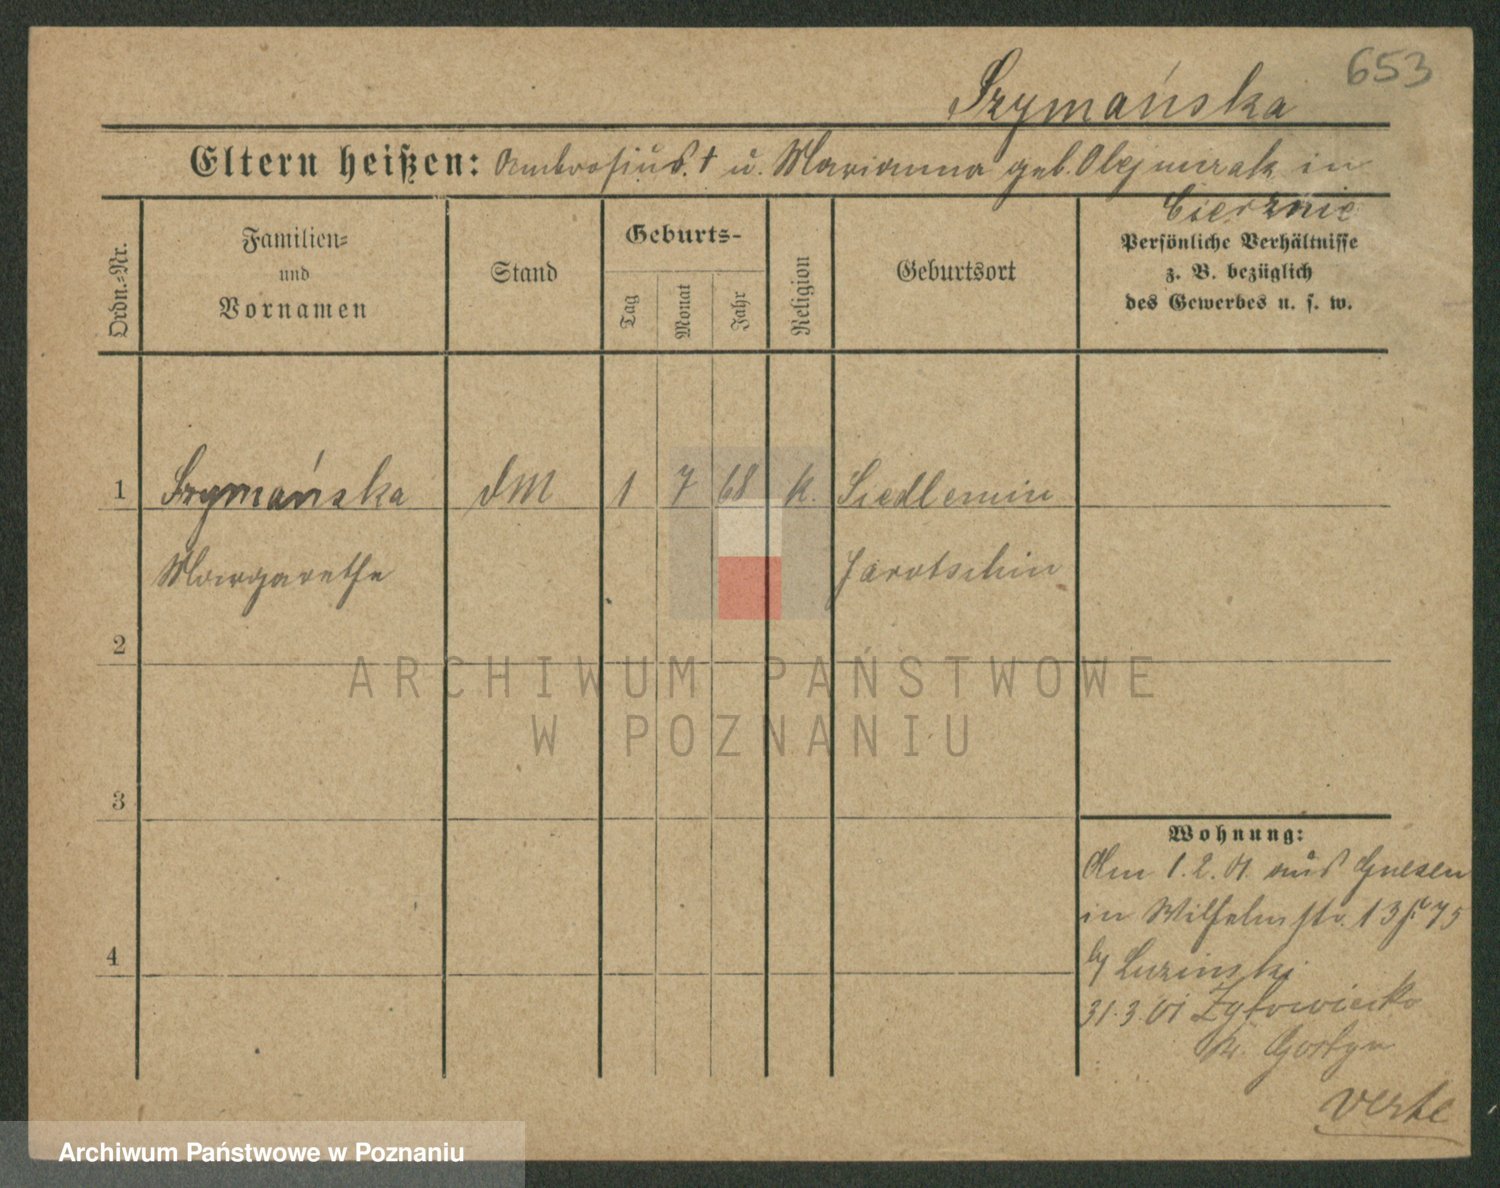 653
Szymańska
Eltern heißen: Ambrosius † u. Marianna geb. Olejniczak in
Cierznie
Ordn.-Nr.
Familien-
und
Vornamen
Stand
Geburts-
Tag
Monat
Jahr
Religion
Geburtsort
Persönliche Verhältnisse
z. B. bezüglich
des Gewerbes u. s. w.
1 Szymańska dM 1 7 68 k. Siedlemin
Margarethe Jarotschin
2
3
4
Wohnung:
Am 1.2.01. aus Gnesen
in Wilhelmstr. 13 75
b/ Luzinski
31.3.01 Zytowiecko
Kr. Gostyn
verte
ARCHIWUM PAŃSTWOWE
W POZNANIU
Archiwum Państwowe w Poznaniu